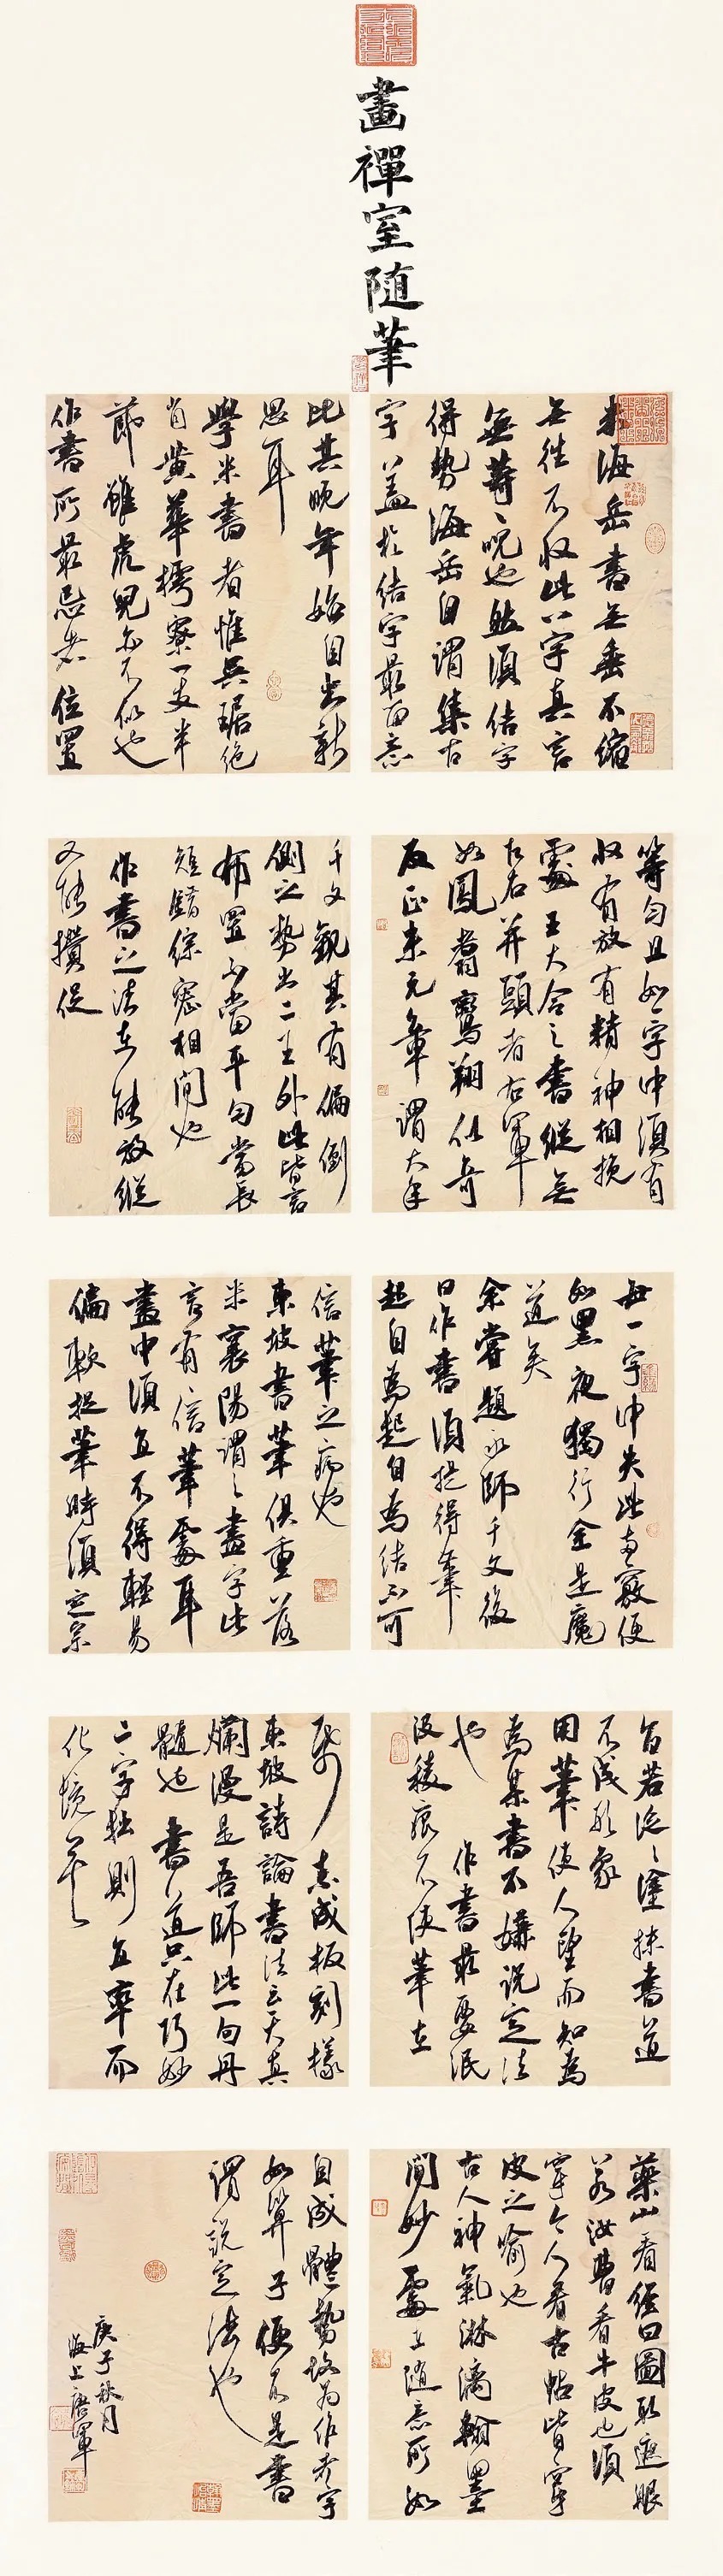 畫禪室随筆
米海岳書無垂不縮
無往不收此八字真言
無等等呪也然須結字
得勢海岳自謂集古
字蓋於結字最留意
比其晚年始自出新
思耳
學米書者惟吳琚絶
肖黃華樗寮一支半
節雖虎兒亦不似也
作書所最忌者位置
等勻且如一字中須有
收有放有精神相挽
處王大令之書從無
左右並頭者右軍
如鳳翥鸞翔似奇
反正米元章謂大年
千文觀其有偏倒
側之勢出二王外此皆言
布置不當平勻當長
短錯綜密相間也
作書之法在能放縱
又能攢促
每一字中失此兩竅便
如黑夜獨行全是魔
道矣
余嘗題永師千文後
曰作書須提得筆
起自為起自為結不可
信筆之病也
東坡書筆俱重落
米襄陽謂之畫字此
言有信筆處耳
畫中須直不得輕易
偏軟捉筆時須定宗
旨若泛泛塗抹書道
不成形象
用筆使人望而知為
為某書不嫌說定法
也 作書最要泯
沒稜痕不使筆在
紙素成板刻樣
東坡詩論書法云天真
爛漫是吾師此一句丹
髓也 書道只在巧妙
二字拙則直率而
化境矣
藥山看經曰圖取遮眼
若汝曹看牛皮也須
穿今人看古帖皆穿
皮之喻也
古人神氣淋漓翰墨
間妙處在隨意所如
自成體勢故為作者字
如算子便不是書
謂說定法也
庚子秋月
海上唐軍